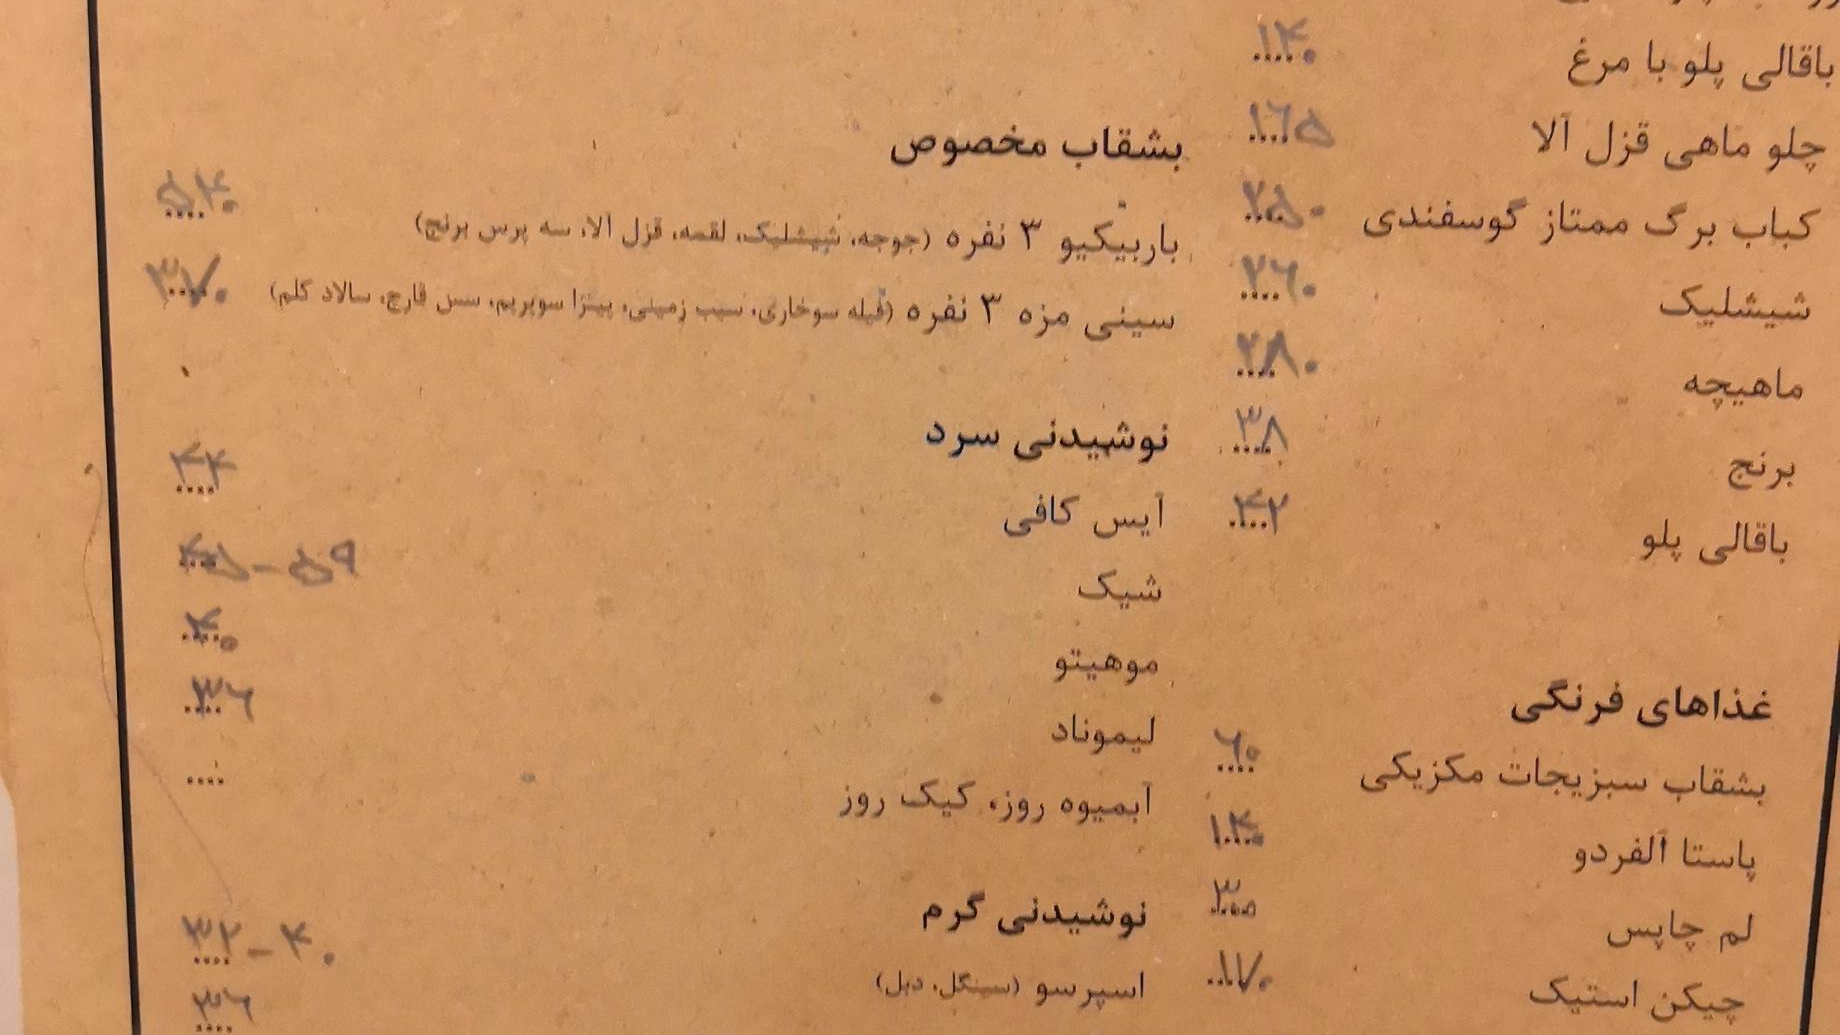 باقالی پلو با مرغ ۱۴۰
چلو ماهی قزل آلا ۱۶۵
کباب برگ ممتاز گوسفندی ۲۵۰
شیشلیک ۲۶۰
ماهیچه ۲۸۰
برنج ۳۸
باقالی پلو ۴۲
غذاهای فرنگی
بشقاب سبزیجات مکزیکی ۶۰
پاستا آلفردو ۱۴۰
لم چاپس ۳۰۰
چیکن استیک ۱۷۰
بشقاب مخصوص
باربیکیو ۳ نفره (جوجه، شیشلیک، لقمه، قزل آلا، سه پرس برنج) ۵۴۰
سینی مزه ۳ نفره (فیله سوخاری، سیب زمینی، پیتزا سوپریم، سس قارچ، سالاد کلم) ۳۷۰
نوشیدنی سرد
آیس کافی ۴۴
شیک ۴۵-۵۹
موهیتو ۴۰
لیموناد ۳۶
آبمیوه روز، کیک روز ....
نوشیدنی گرم
اسپرسو (سینگل، دبل) ۳۲-۴۰
۳۶